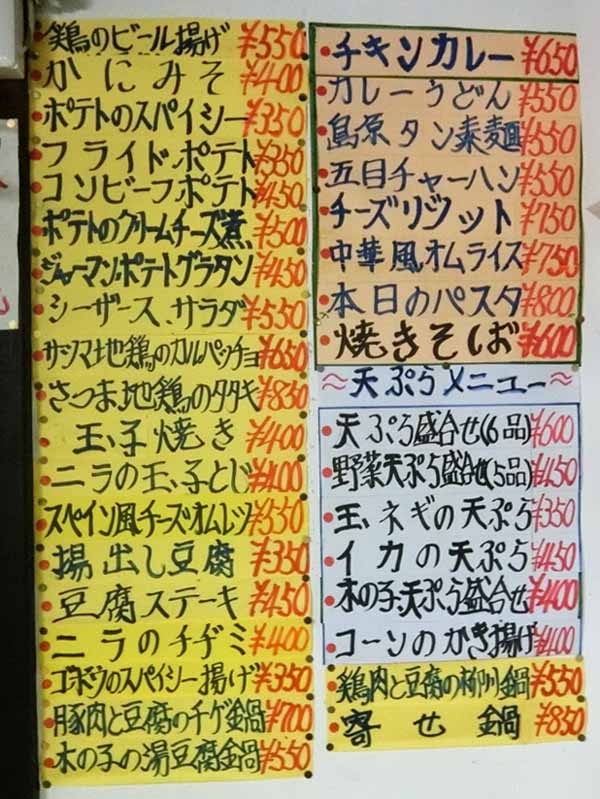 鶏のビール揚げ ¥550
かにみそ ¥400
ポテトのスパイシー ¥350
フライドポテト ¥350
コンビーフポテト ¥450
ポテトのクリームチーズ煮 ¥500
ジャーマンポテトグラタン ¥450
シーザースサラダ ¥550
サツマ地鶏のカルパッチョ ¥650
さつま地鶏のタタキ ¥850
玉子焼き ¥400
ニラの玉子とじ ¥400
スペイン風チーズオムレツ ¥550
揚出し豆腐 ¥350
豆腐ステーキ ¥450
ニラのチヂミ ¥400
ゴボウのスパイシー揚げ ¥350
豚肉と豆腐のチゲ鍋 ¥700
木の子の湯豆腐鍋 ¥550
チキンカレー ¥650
カレーうどん ¥550
島原タン素麺 ¥550
五目チャーハン ¥550
チーズリゾット ¥750
中華風オムライス ¥750
本日のパスタ ¥800
焼きそば ¥600
≈天ぷらメニュー≈
天ぷら盛合せ(6品) ¥600
野菜天ぷら盛合せ(5品) ¥450
玉ネギの天ぷら ¥350
イカの天ぷら ¥450
木の子天ぷら盛合せ ¥400
コーンのかき揚げ ¥400
鶏肉と豆腐の柳川鍋 ¥550
寄せ鍋 ¥850